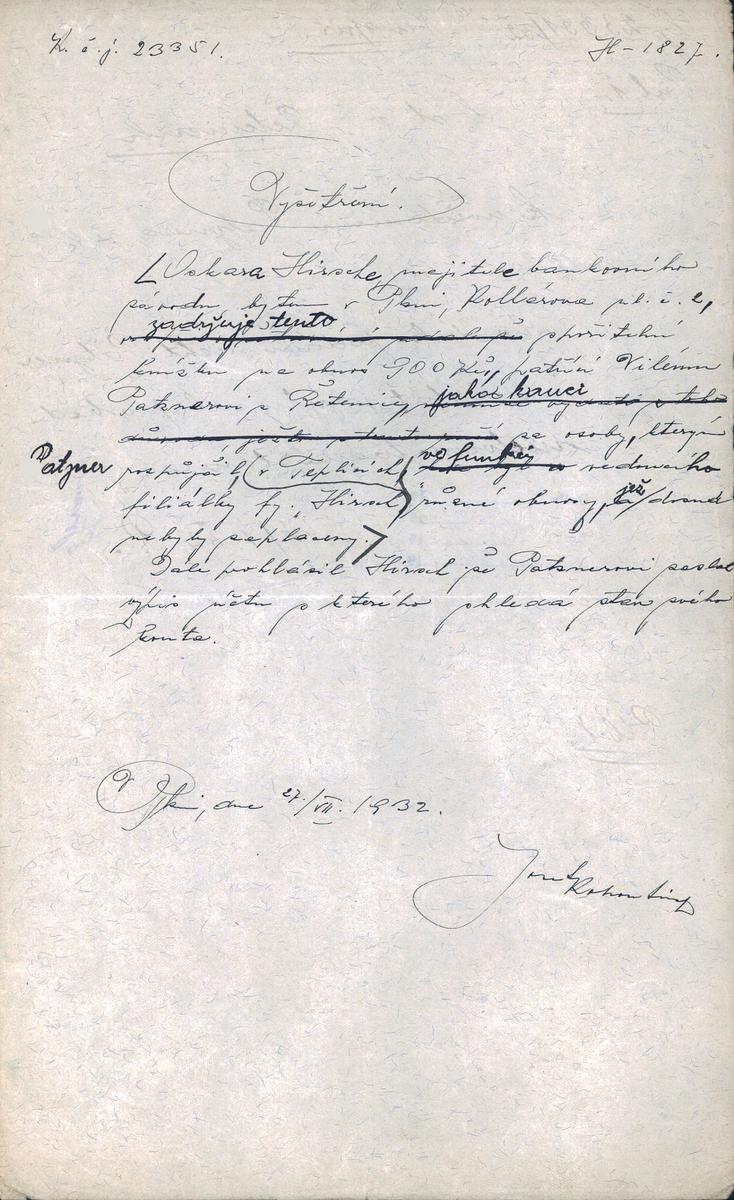 K. č. j. 23351.
H - 1827.
Vyšetření.
Oskara Hirsche, majitele bankovního
závodu bytem v Plzni, Kollárova ul. č. 2,
zadržuje tento
spořitelní
knížku na obnos 900 Kč, patřící Vilému
Patznerovi z Řetenic, jako kauci
za osoby, kterým
Patzner
rozpůjčil v Teplicích ve funkci vedoucího
filiálky fy. „Hirsch" různé obnosy, jež dosud
nebyly zaplaceny.
Dále prohlásil Hirsch že Patznerovi zaslal
výpis účtu z kterého shledá stav svého
konta.
V Plzni, dne 27./VII. 1932.
Josef